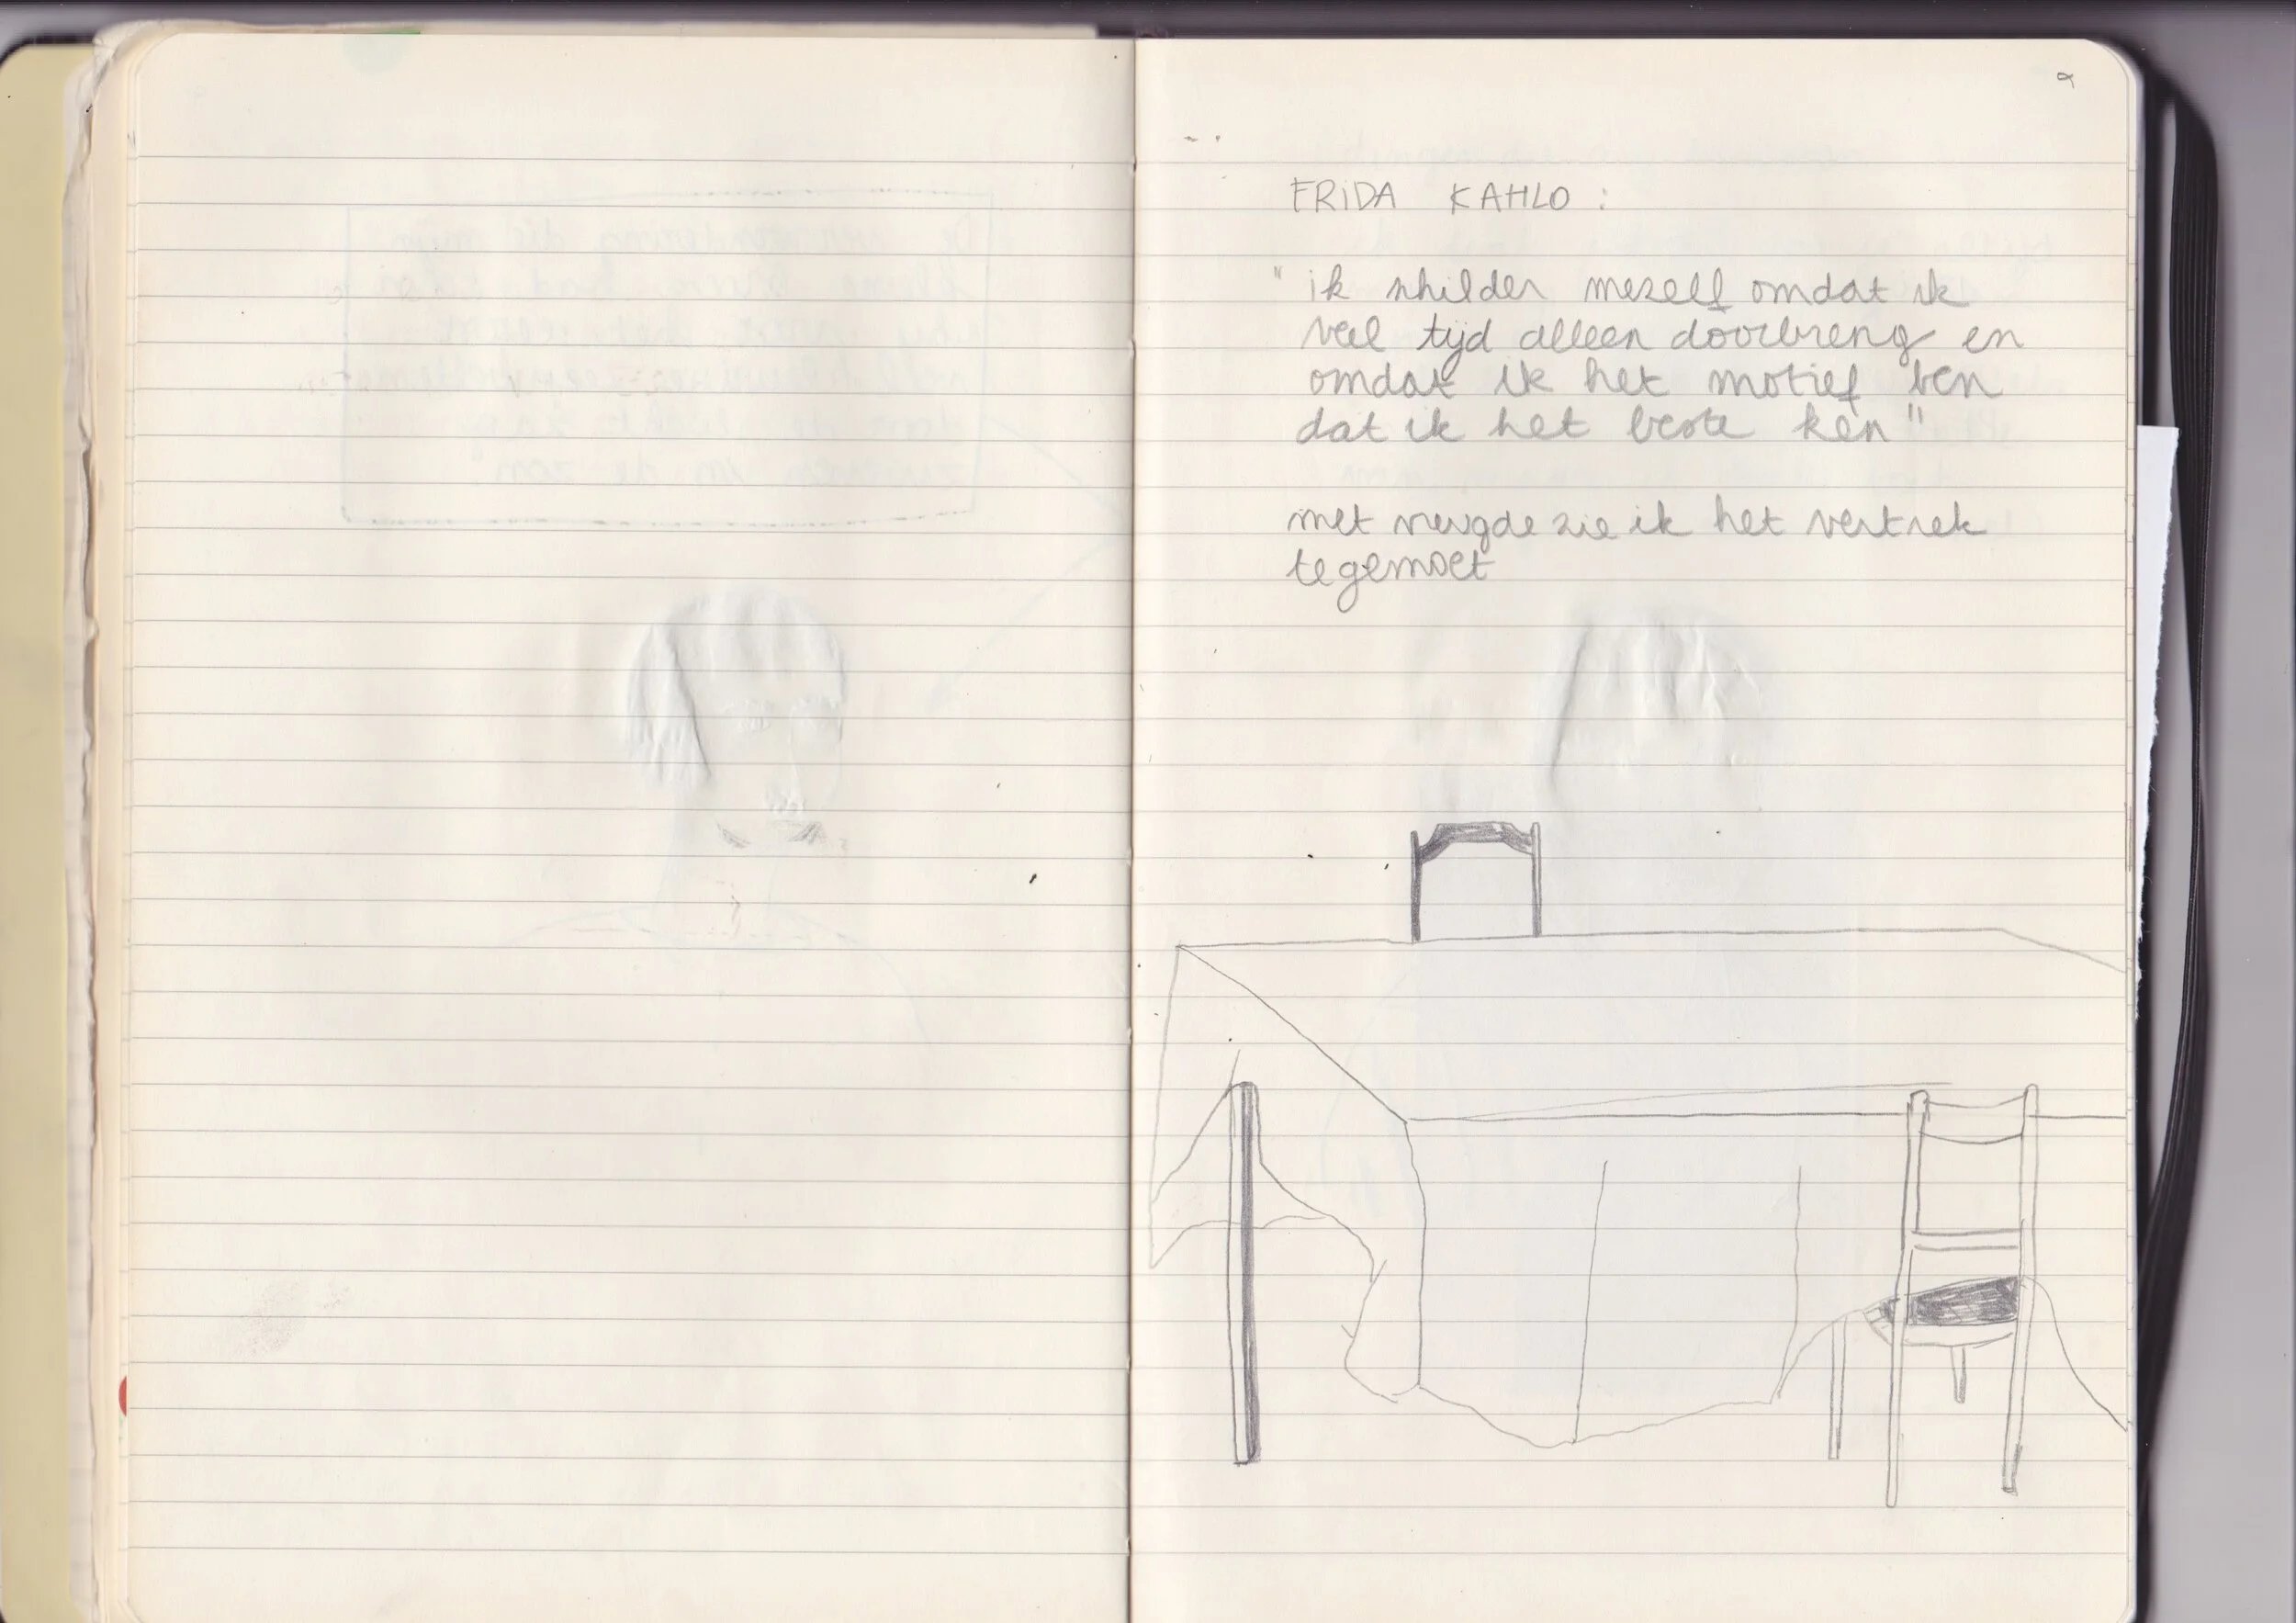 FRIDA KAHLO :
" ik schilder mezelf omdat ik
veel tijd alleen doorbreng en
omdat ik het motief ben
dat ik het beste ken "
met vreugde zie ik het vertrek
tegemoet